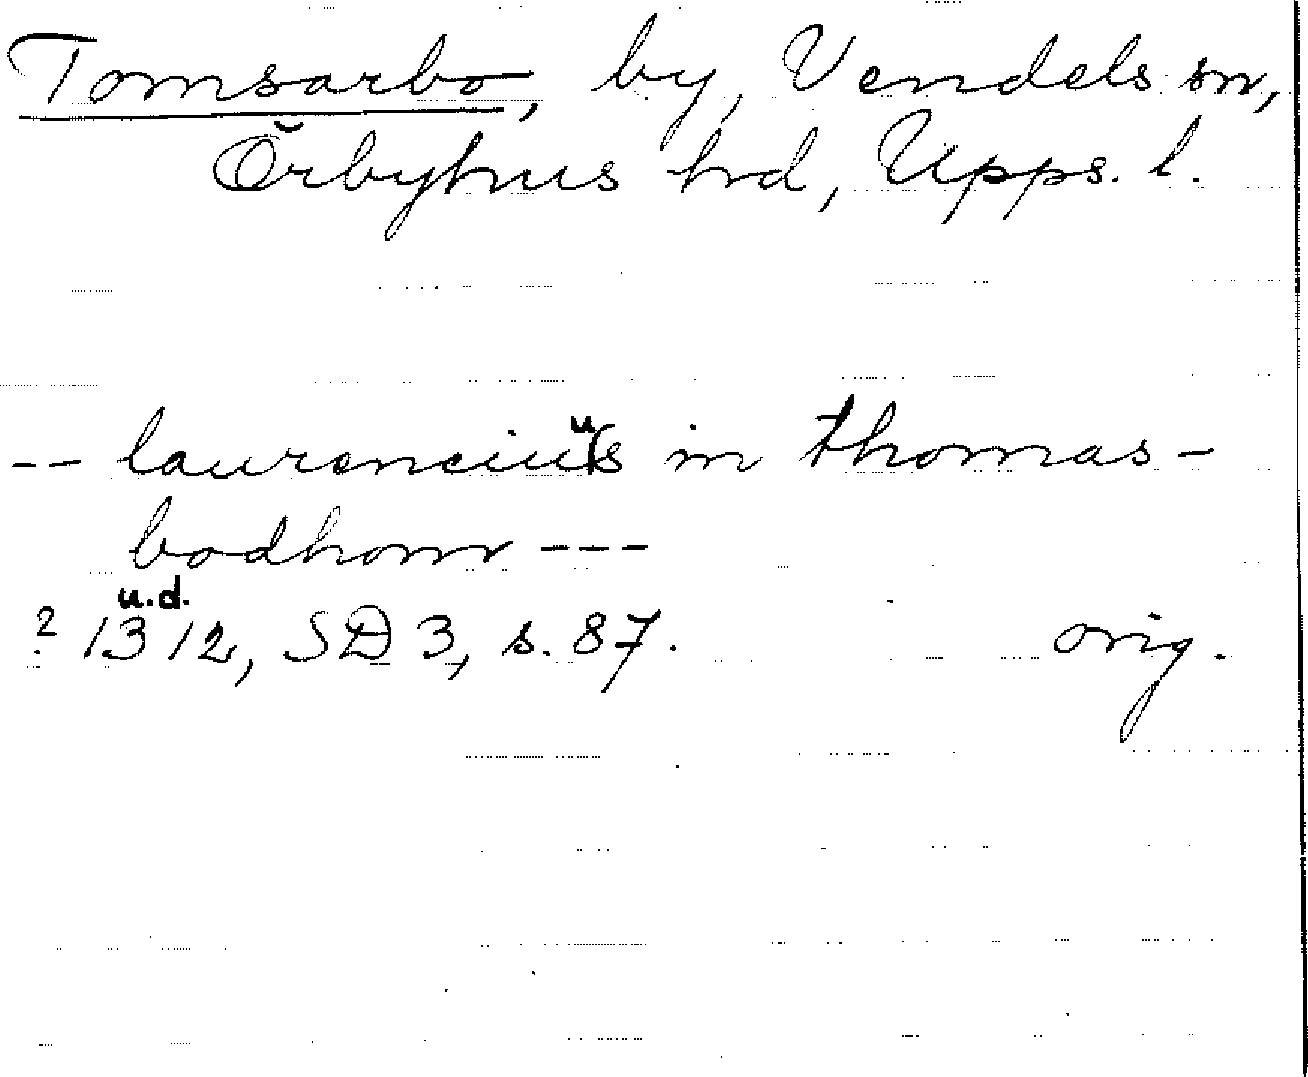 Tomsarbo, by, Vendels sn,
Örbyhus hrd, Upps. l.
-- laurencius in thomas-
bodhom ---
u.d.
? 1312, SD 3, s. 87. orig.